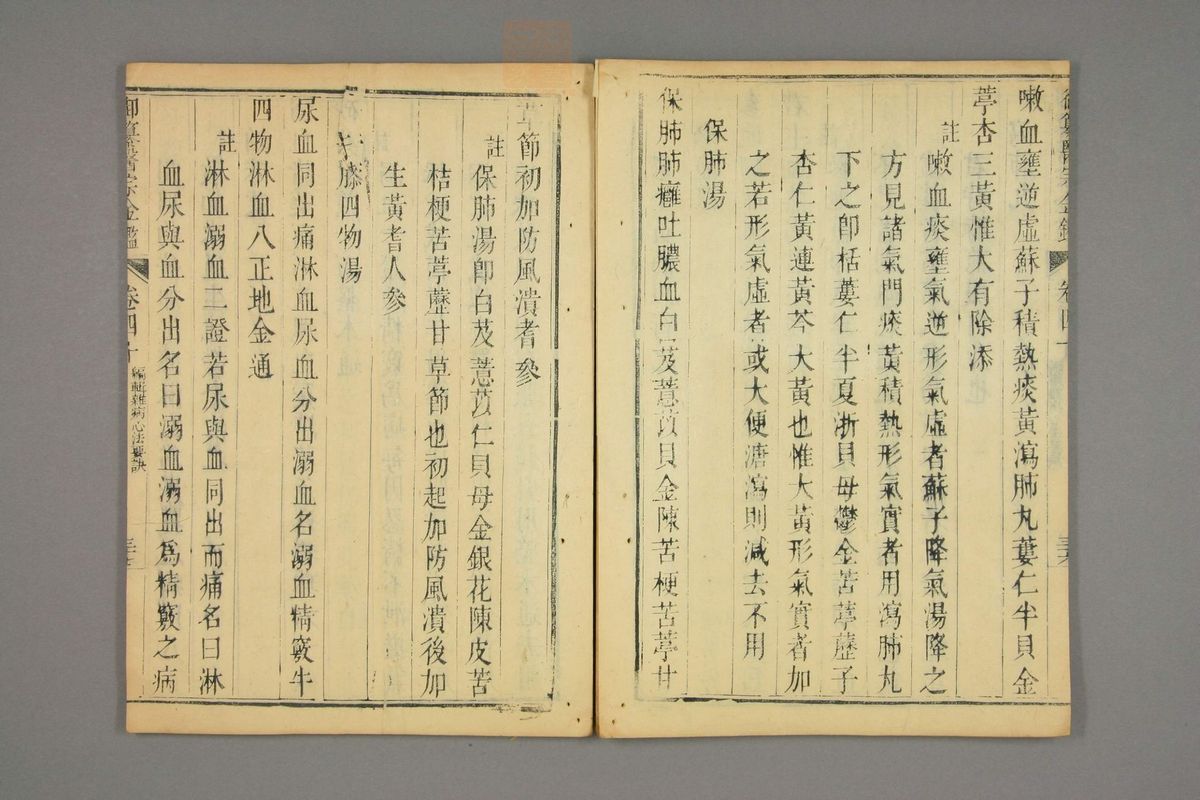 嗽血壅逆虛蘇子積熱痰黃瀉肺丸蔞仁半貝金
葶杏三黃惟大有除添
註
嗽血痰壅氣逆形氣虛者蘇子降氣湯降之
方見諸氣門痰黃積熱形氣實者用瀉肺丸
下之卽栝蔞仁半夏浙貝母鬱金苦葶藶子
杏仁黃連黃芩大黃也惟大黃形氣實者加
之若形氣虛者或大便溏瀉則減去不用
保肺湯
保肺肺癰吐膿血白芨薏苡貝金陳苦梗苦葶甘
草節初加防風潰耆參
註
保肺湯卽白芨薏苡仁貝母金銀花陳皮苦
桔梗苦葶藶甘草節也初起加防風潰後加
生黃耆人參
牛膝四物湯
尿血同出痛淋血尿血分出溺血名溺血精竅牛
四物淋血八正地金通
註
淋血溺血二證若尿與血同出而痛名曰淋
血尿與血分出名曰溺血溺血爲精竅之病
御篹醫宗金鑑
卷四十
編輯雜病心法要訣